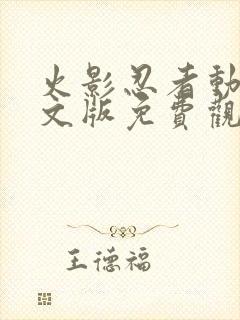 火影忍者動
文版免費觀
王德福